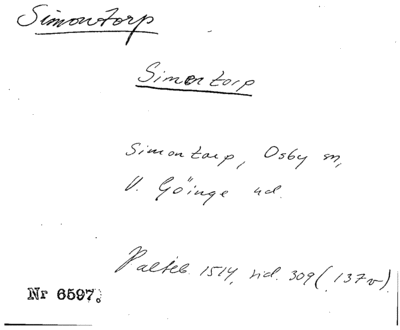 Simontorp
Simontorp
Simontorp, Osby sn,
V. Göinge hd.
Palteb. 1514, sid. 309 (137v)
Nr 6597.